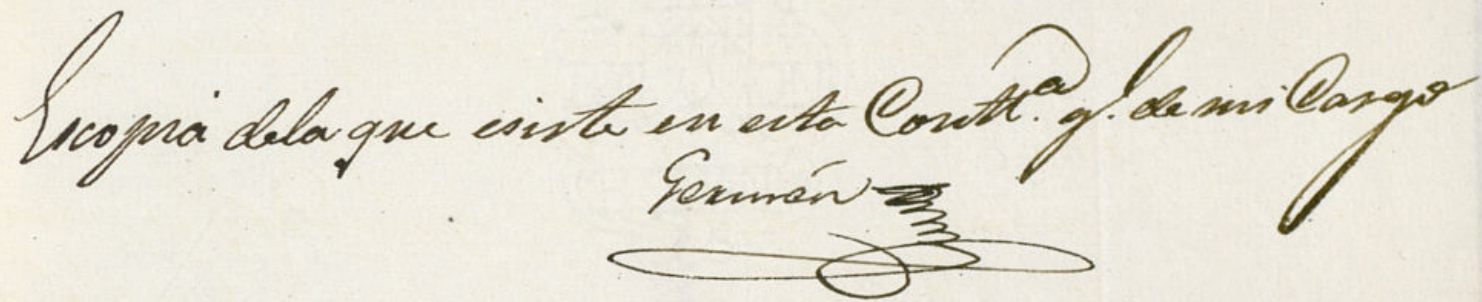 Es copia dela que esiste en esta Contt.ª g.l de mi Cargo
Germán